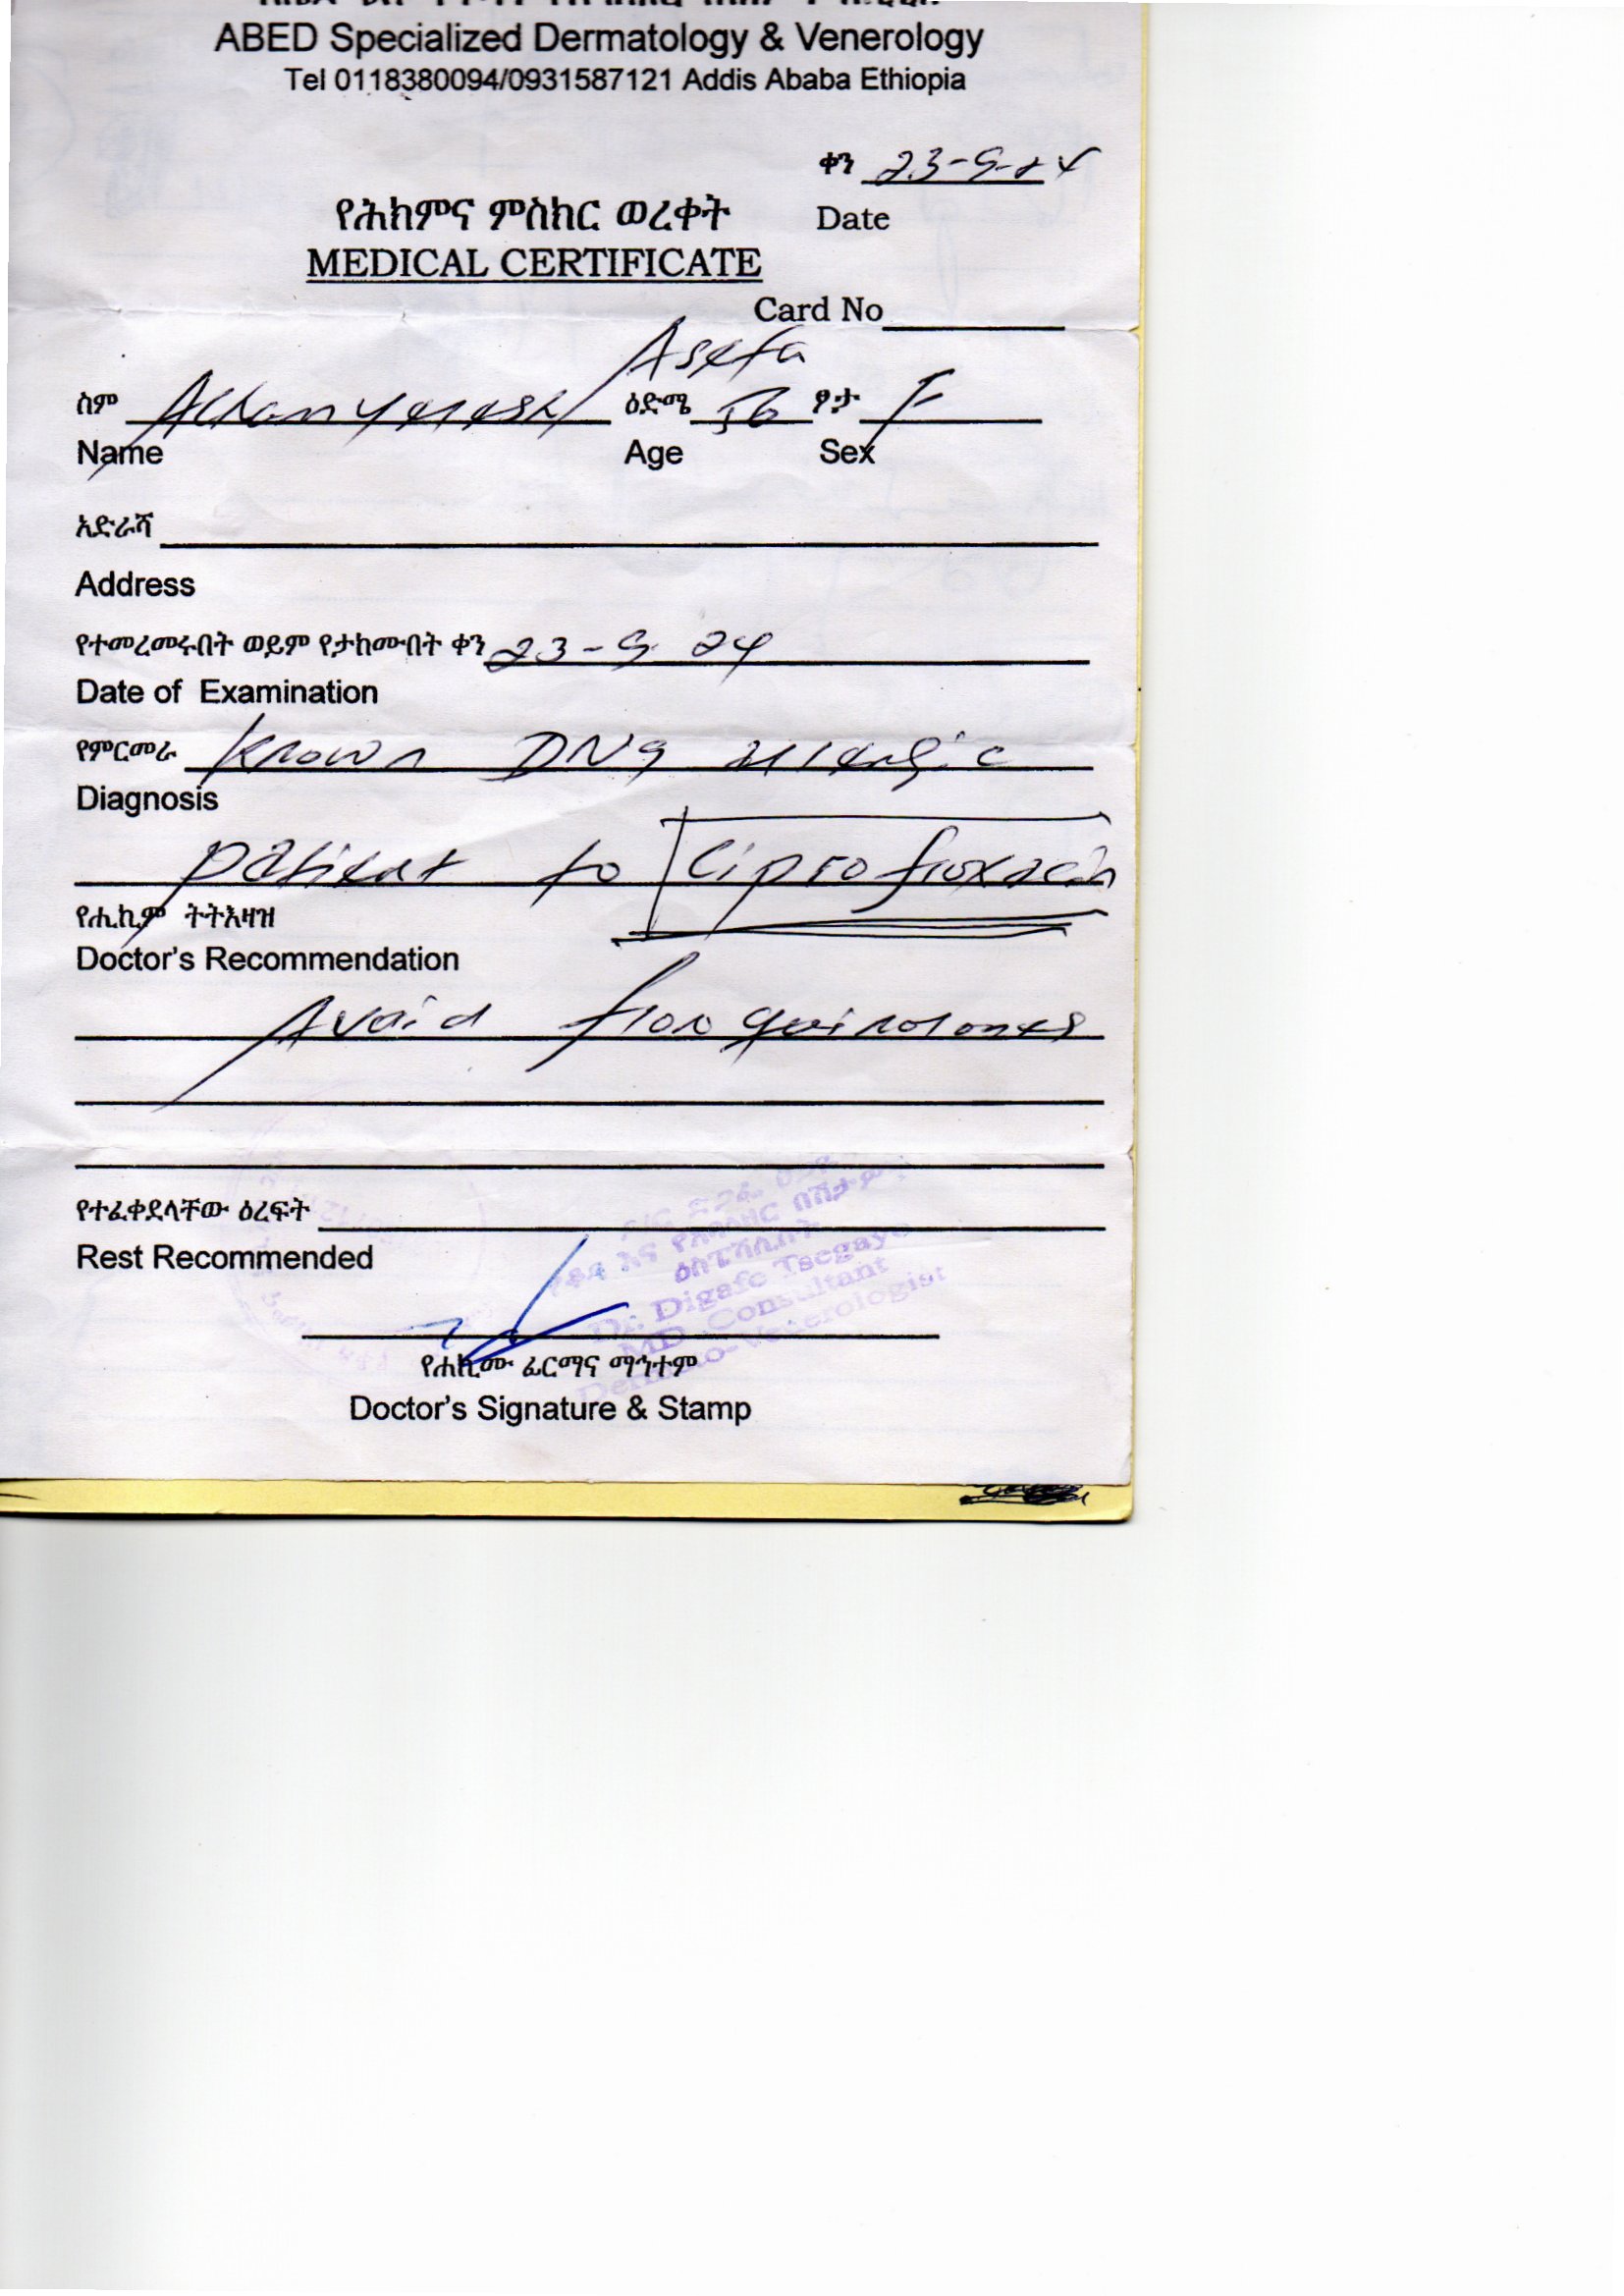 ABED Specialized Dermatology & Venerology
Tel 0118380094/0931587121 Addis Ababa Ethiopia
ቀን 23-9-24
የሕክምና ምስክር ወረቀት Date
MEDICAL CERTIFICATE
Card No
Asefa
ስም ዕድሜ 56 ፆታ F
Name Age Sex
አድራሻ
Address
የተመረመሩበት ወይም የታከሙበት ቀን 23-9-24
Date of Examination
የምርመራ Known allergic
Diagnosis
patient to Ciprofloxacin
የሐኪም ትትእዛዝ
Doctor's Recommendation
Avoid
የተፈቀደላቸው ዕረፍት
Rest Recommended
Dr. Digafe Tsegaye
MD Consultant
Dermato-Venerologist
የሐኪሙ ፊርማና ማኅተም
Doctor's Signature & Stamp